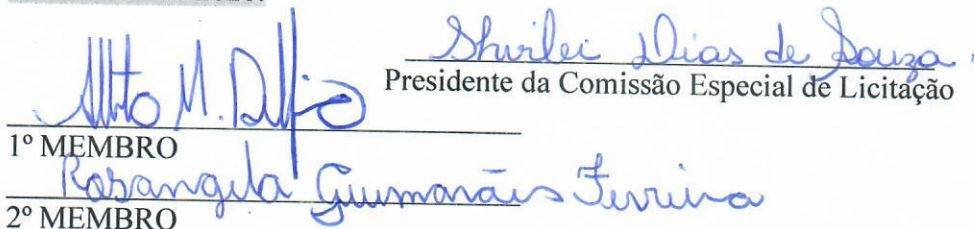 Shirlei Dias de Souza.
Presidente da Comissão Especial de Licitação
M.
1º MEMBRO
Rosangela Guimarães Ferreira
2º MEMBRO